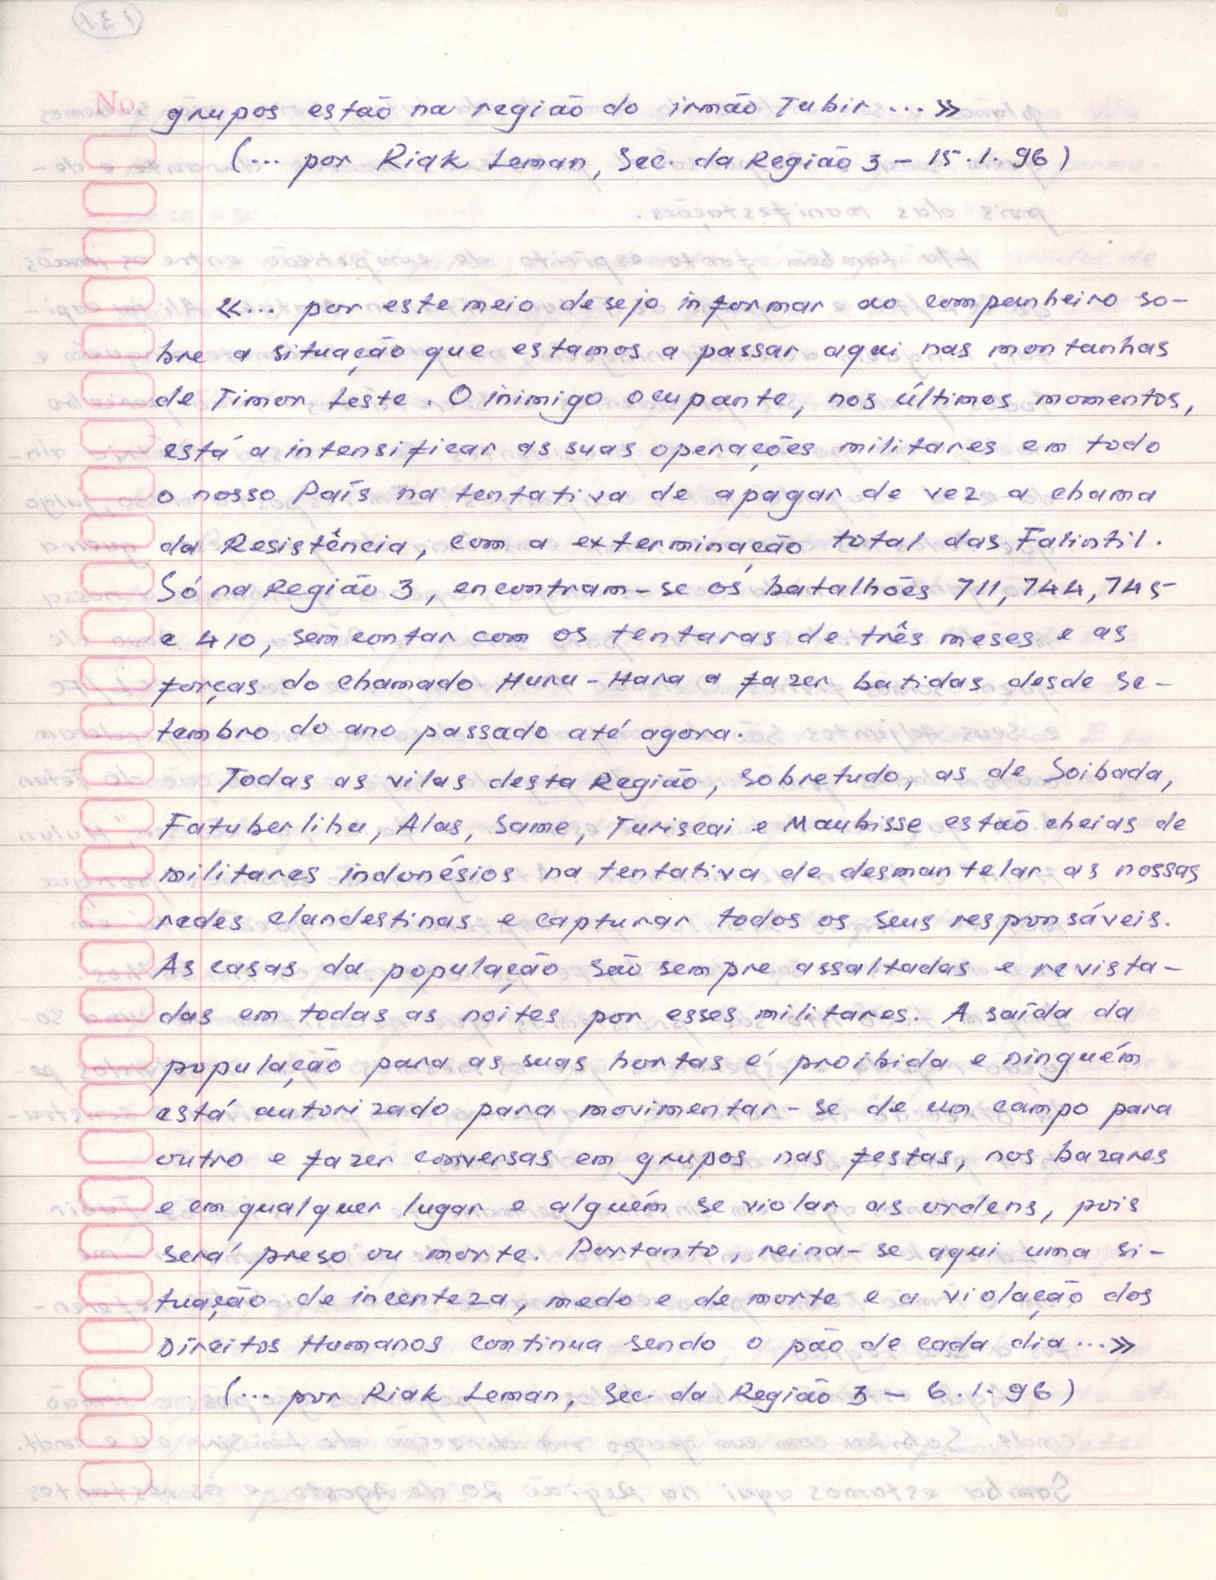 No.
grupos estão na região do irmão Tubir ... »
(... por Riak Leman, Sec. da Região 3 - 15.1.96)
«... por este meio desejo informar ao companheiro so-
bre a situação que estamos a passar aqui nas montanhas
de Timor Leste. O inimigo ocupante, nos últimos momentos,
está a intensificar as suas operações militares em todo
o nosso País na tentativa de apagar de vez a chama
da Resistência, com a exterminação total das Falintil.
Só na Região 3, encontram-se os batalhões 711, 744, 745
e 410, sem contar com os tentaras de três meses e as
forças do chamado Huru-Hara a fazer batidas desde Se-
tembro do ano passado até agora.
Todas as vilas desta Região, sobretudo, as de Soibada,
Fatuberlihu, Alas, Same, Turiscai e Maubisse estão cheias de
militares indonésios na tentativa de desmantelar as nossas
redes clandestinas e capturar todos os seus responsáveis.
As casas da população são sempre assaltadas e revista-
das em todas as noites por esses militares. A saída da
população para as suas hortas é proibida e ninguém
está autorizado para movimentar-se de um campo para
outro e fazer conversas em grupos nas festas, nos bazares
e em qualquer lugar e alguém se violar as ordens, pois
será preso ou morte. Portanto, reina-se aqui uma si-
tuação de incenteza, medo e de morte e a violação dos
Direitos Humanos continua sendo o pão de cada dia ... »
(... por Riak Leman, Sec. da Região 3 - 6.1.96)